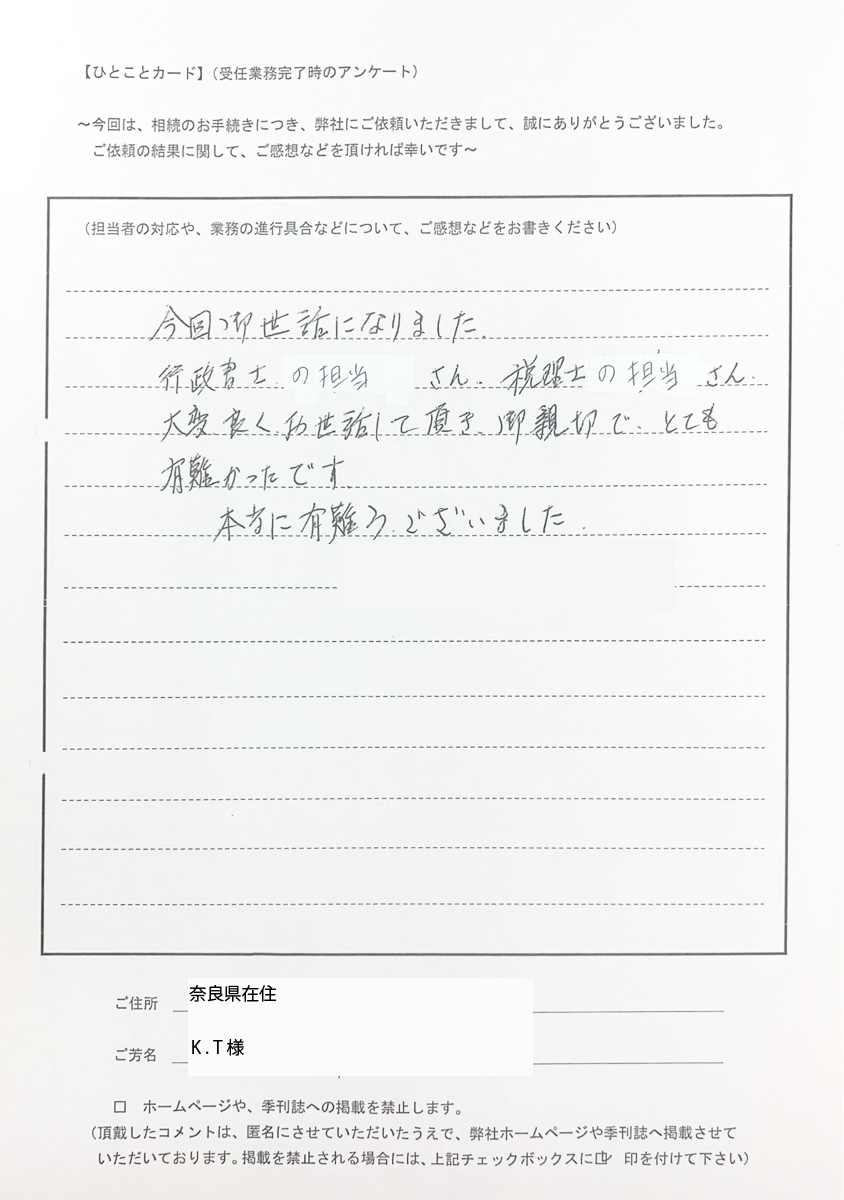 【ひとことカード】（受任業務完了時のアンケート）
～今回は、相続のお手続きにつき、弊社にご依頼いただきまして、誠にありがとうございました。
ご依頼の結果に関して、ご感想などを頂ければ幸いです～
（担当者の対応や、業務の進行具合などについて、ご感想などをお書きください）
今回御世話になりました。
行政書士の担当さん、税理士の担当さん、
大変良くお世話して頂き、御親切で、とても
有難かったです。
本当に有難うございました。
ご住所 奈良県在住
ご芳名 K.T様
□ ホームページや、季刊誌への掲載を禁止します。
（頂戴したコメントは、匿名にさせていただいたうえで、弊社ホームページや季刊誌へ掲載させて
いただいております。掲載を禁止される場合には、上記チェックボックスに☑ 印を付けて下さい）